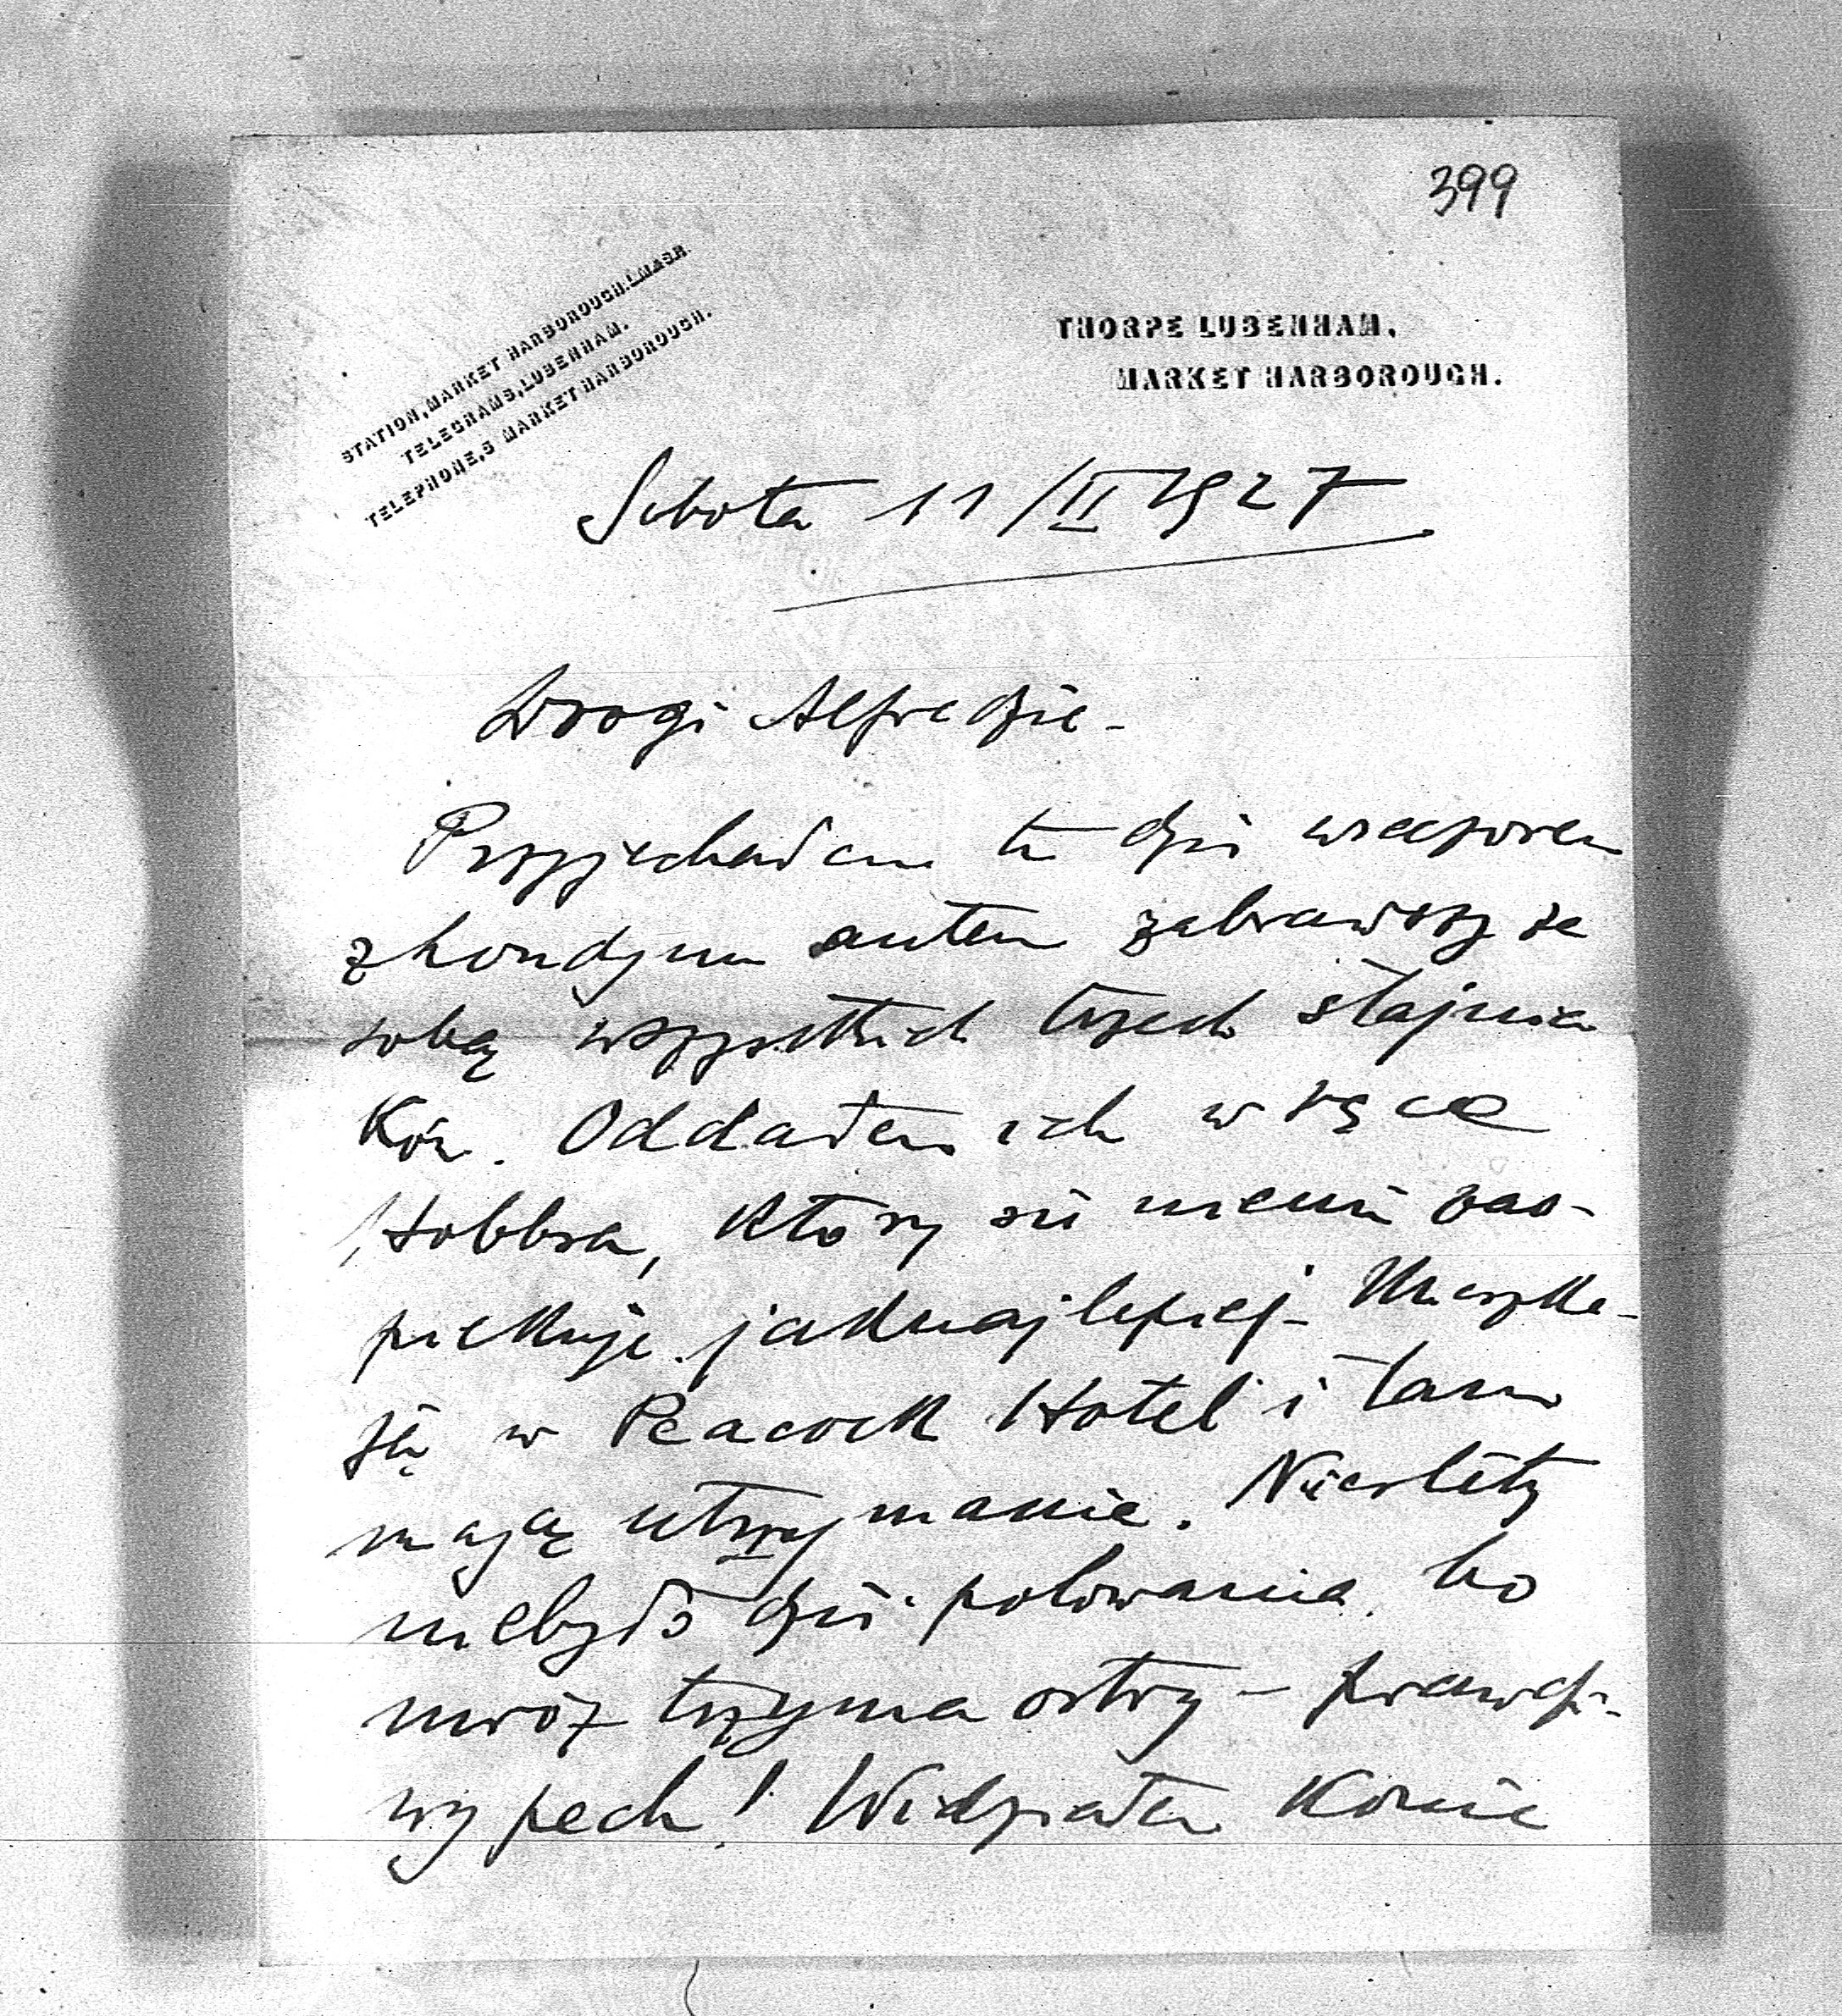 399
STATION, MARKET HARBOROUGH. L.M.&S.R.
TELEGRAMS, LUBENHAM.
TELEPHONE, 3 MARKET HARBOROUGH.
THORPE LUBENHAM,
MARKET HARBOROUGH.
Sobota 11/II 1927
Drogi Alfredzie -
Przyjechałem tu dziś wieczorem
z Londynu autem zabrawszy ze
sobą wszystkich trzech stajnia
ków. Oddałem ich w ręce
Hobbsa, który się niemi zao-
piekuje jaknajlepiej - Mieszka-
ją w Peacock Hotel i tam
mają utrzymanie. Niestety
niebyło dziś polowania bo
mróz trzyma ostry - prawdzi-
wy pech! Widziałem konie